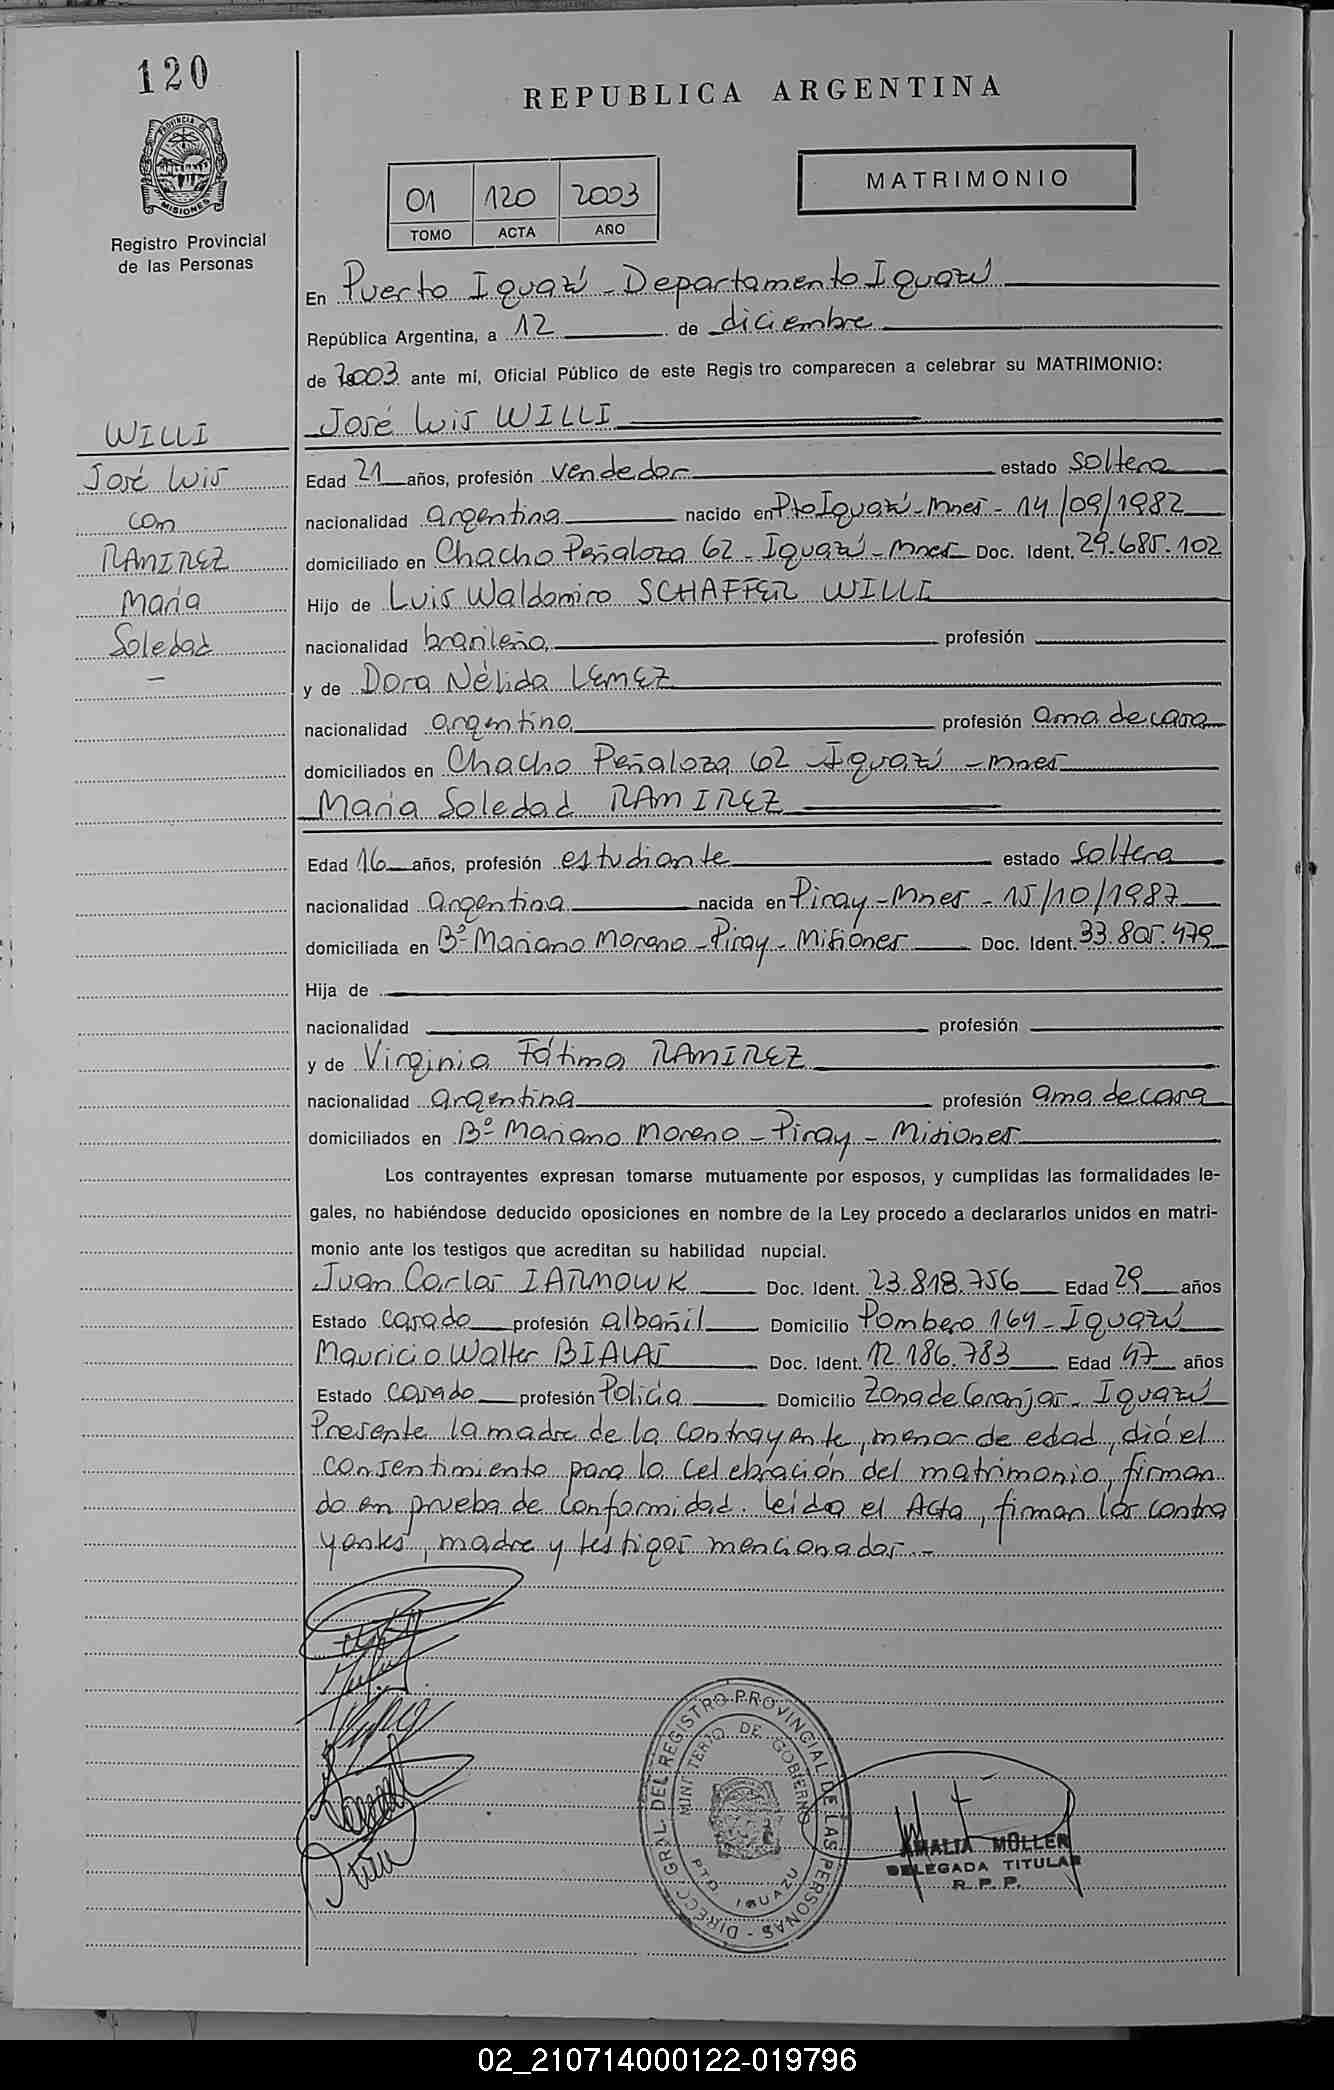 120
REPUBLICA ARGENTINA
PROVINCIA DE MISIONES
Registro Provincial
de las Personas
01 120 2003
TOMO ACTA AÑO
MATRIMONIO
En Puerto Iguazú - Departamento Iguazú
República Argentina, a 12 de diciembre
de 2003 ante mí, Oficial Público de este Regis tro comparecen a celebrar su MATRIMONIO:
José Luis WILLI
WILLI
José Luis
con
RAMIREZ
María
Soledad
Edad 21 años, profesión vendedor estado soltero
nacionalidad argentina nacido en Pto Iguazú - Mnes - 14/09/1982
domiciliado en Chacho Peñaloza 62 - Iguazú - Mnes Doc. Ident. 29.685.102
Hijo de Luis Waldomiro SCHAFFER WILLI
nacionalidad brasileña profesión
y de Dora Nélida LEMEZ
nacionalidad argentina profesión ama de casa
domiciliados en Chacho Peñaloza 62 - Iguazú - Mnes
María Soledad RAMIREZ
Edad 16 años, profesión estudiante estado soltera
nacionalidad argentina nacida en Piray - Mnes - 15/10/1987
domiciliada en Bº Mariano Moreno - Piray - Misiones Doc. Ident. 33.805.479
Hija de
nacionalidad profesión
y de Virginia Fátima RAMIREZ
nacionalidad argentina profesión ama de casa
domiciliados en Bº Mariano Moreno - Piray - Misiones
Los contrayentes expresan tomarse mutuamente por esposos, y cumplidas las formalidades le-
gales, no habiéndose deducido oposiciones en nombre de la Ley procedo a declararlos unidos en matri-
monio ante los testigos que acreditan su habilidad nupcial.
Juan Carlos IARMOWK Doc. Ident. 23.818.756 Edad 29 años
Estado casado profesión albañil Domicilio Pombero 164 - Iguazú
Mauricio Walter BIALAS Doc. Ident. 12.186.783 Edad 47 años
Estado casado profesión Policía Domicilio Zona de Granjas - Iguazú
Presente la madre de la contrayente, menor de edad, dió el
consentimiento para la celebración del matrimonio, firman
do en prueba de conformidad. Leída el Acta, firman los contra
yentes, madre y testigos mencionados.-
DIRECC. GRAL. DEL REGISTRO PROVINCIAL DE LAS PERSONAS -
MINISTERIO DE GOBIERNO
PTO. IGUAZU
AMALIA MÜLLER
DELEGADA TITULAR
R. P. P.
02_210714000122-019796